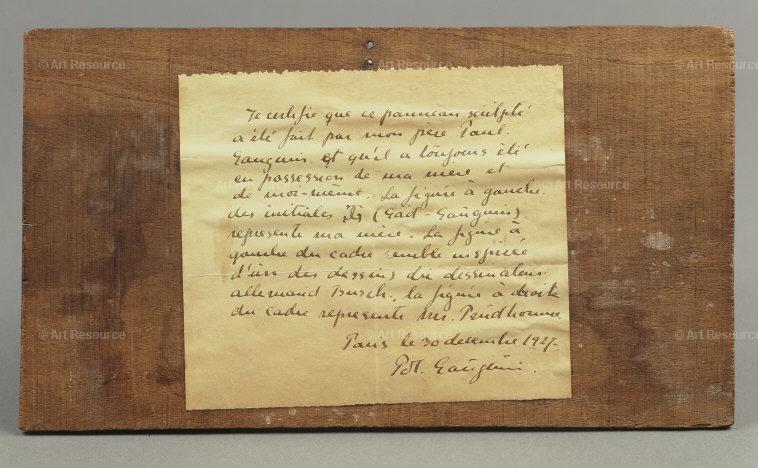 Je certifie que ce panneau sculpté
a été fait par mon père Paul
Gauguin et qu'il a toujours été
en possession de ma mère et
de moi-même. La figure à gauche
des initiales (Gad-Gauguin)
represente ma mère. La figure à
gauche du cadre semble inspirée
d'un des dessins du dessinateur
allemand Busch, la figure à droite
du cadre represente Mr. Prudhomme
Paris le 30 décembre 1927-
Pol. Gauguin.
© Art Resource
© Art Resource
© Art Resource
© Art Resource
© Art Resource
© Art Resource